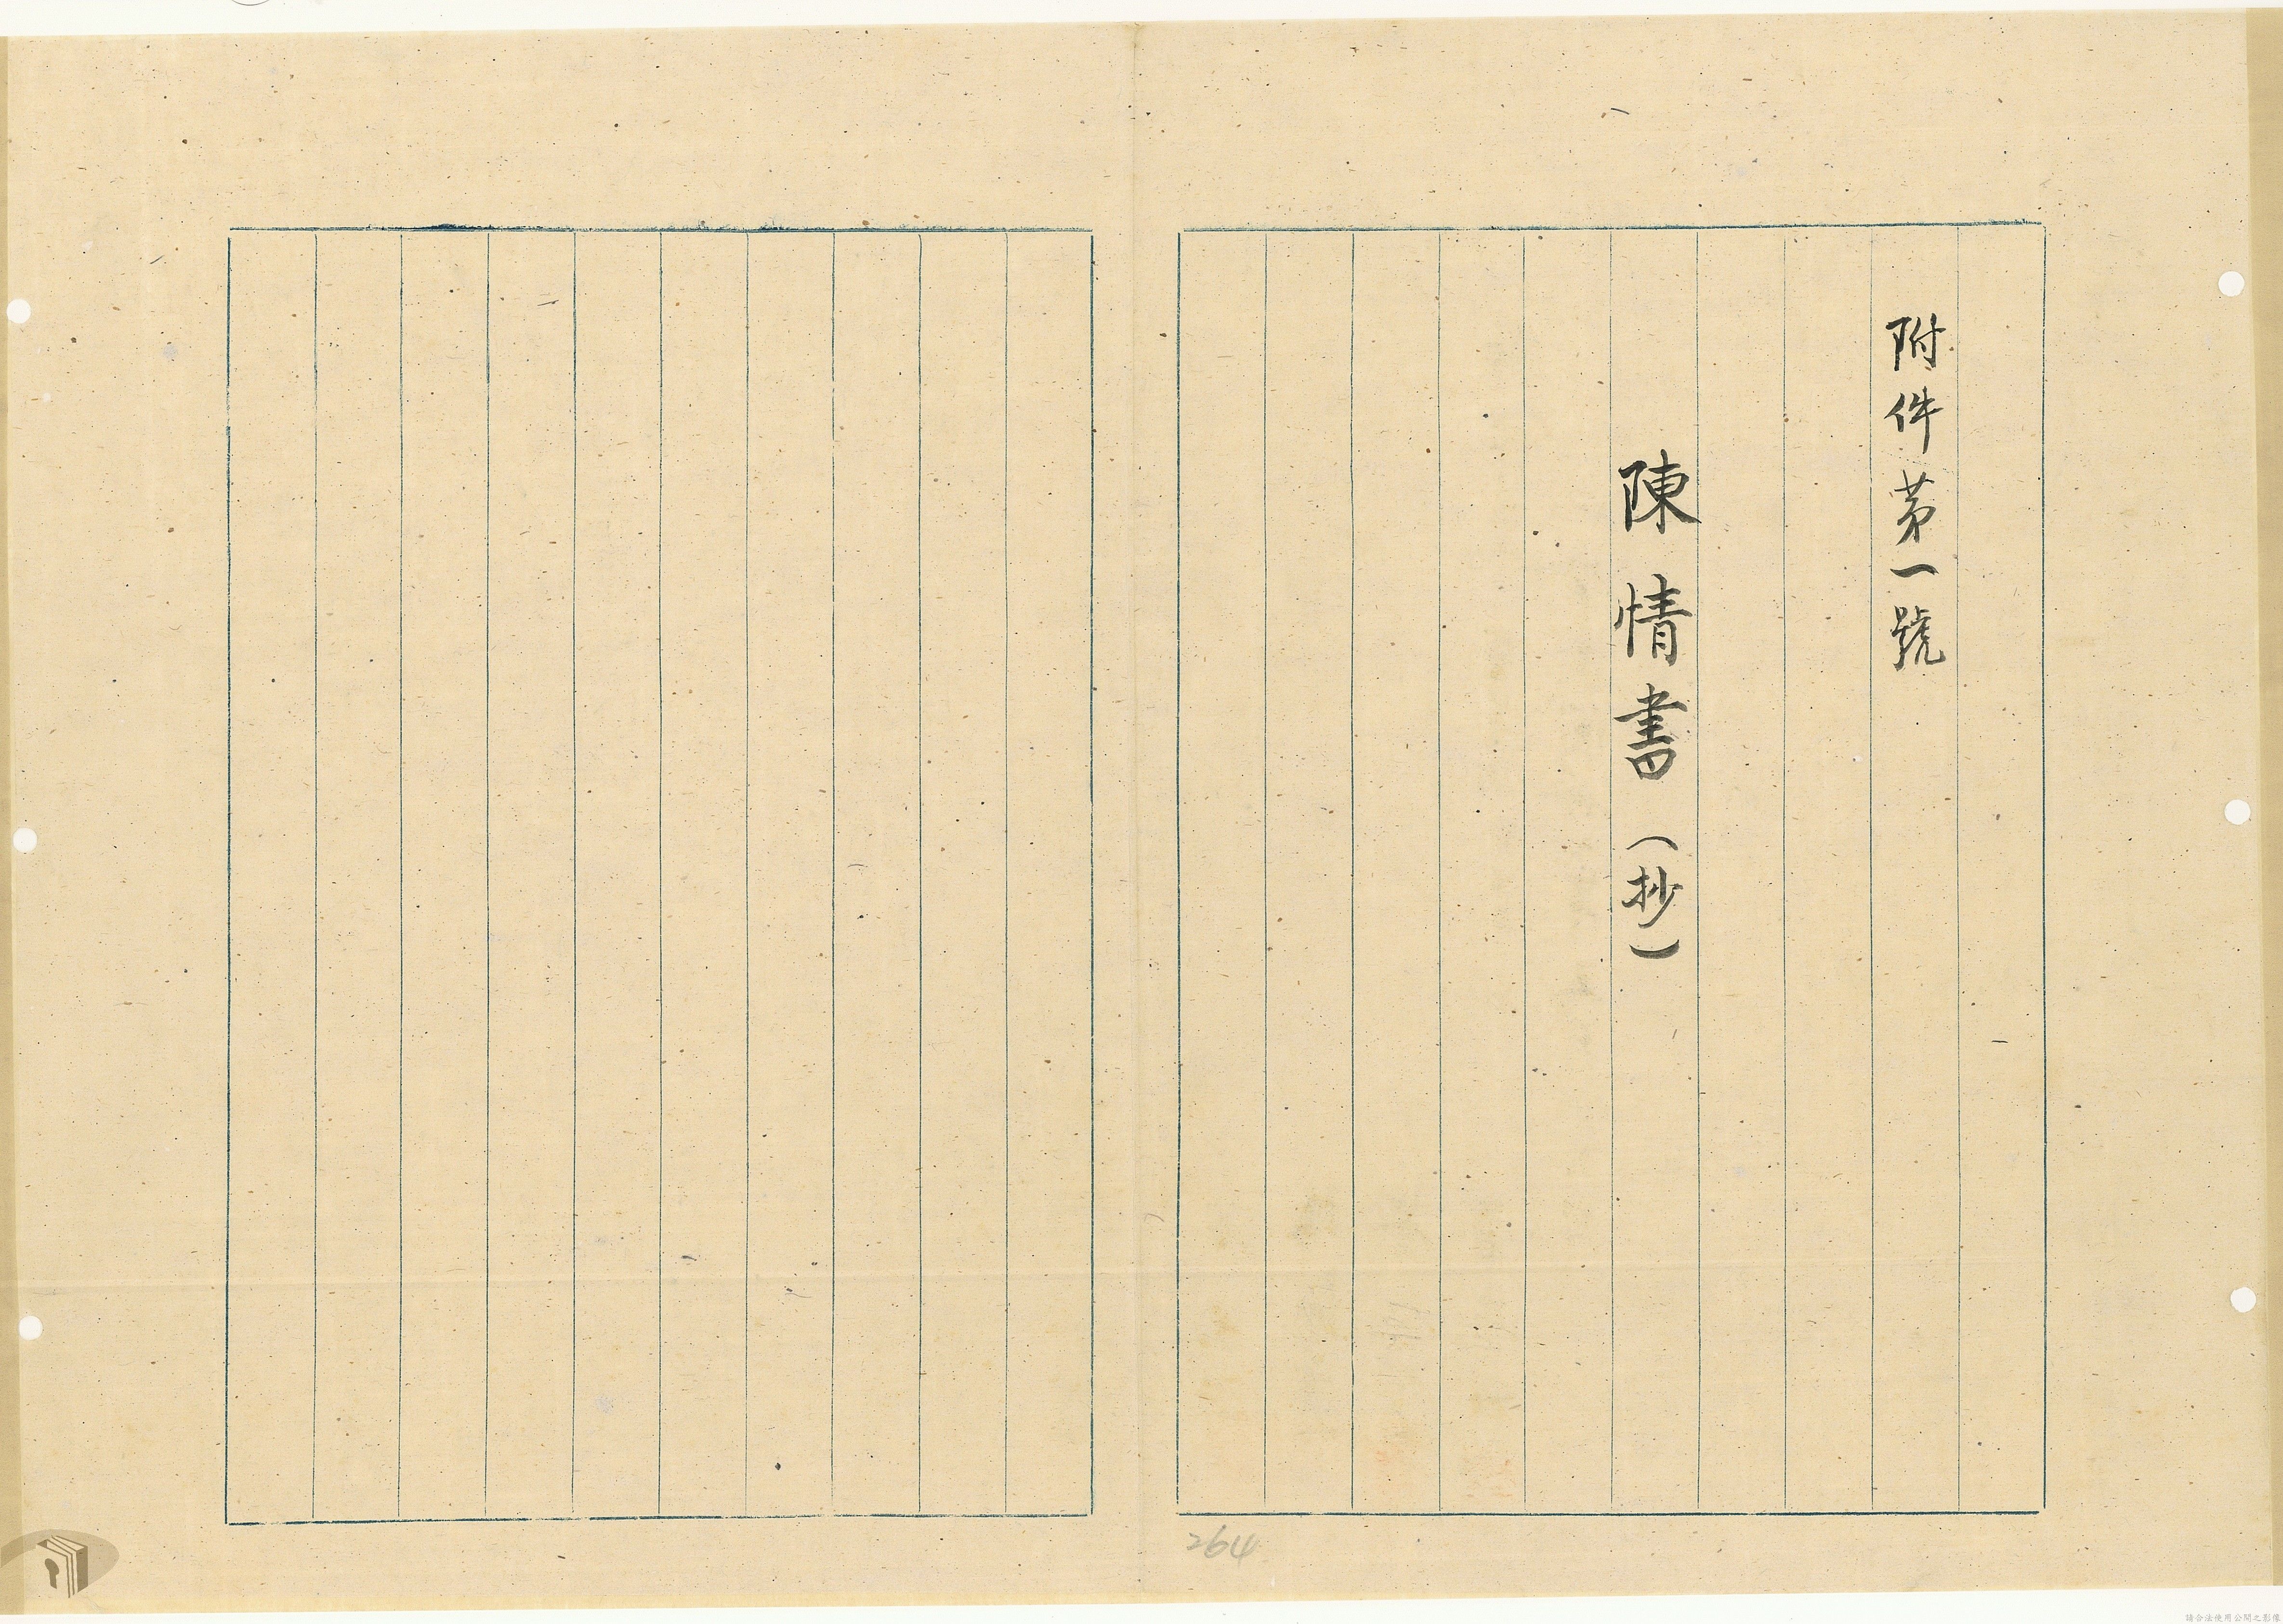 附件第一號
陳情書（抄）
264
請合法使用公開之影像